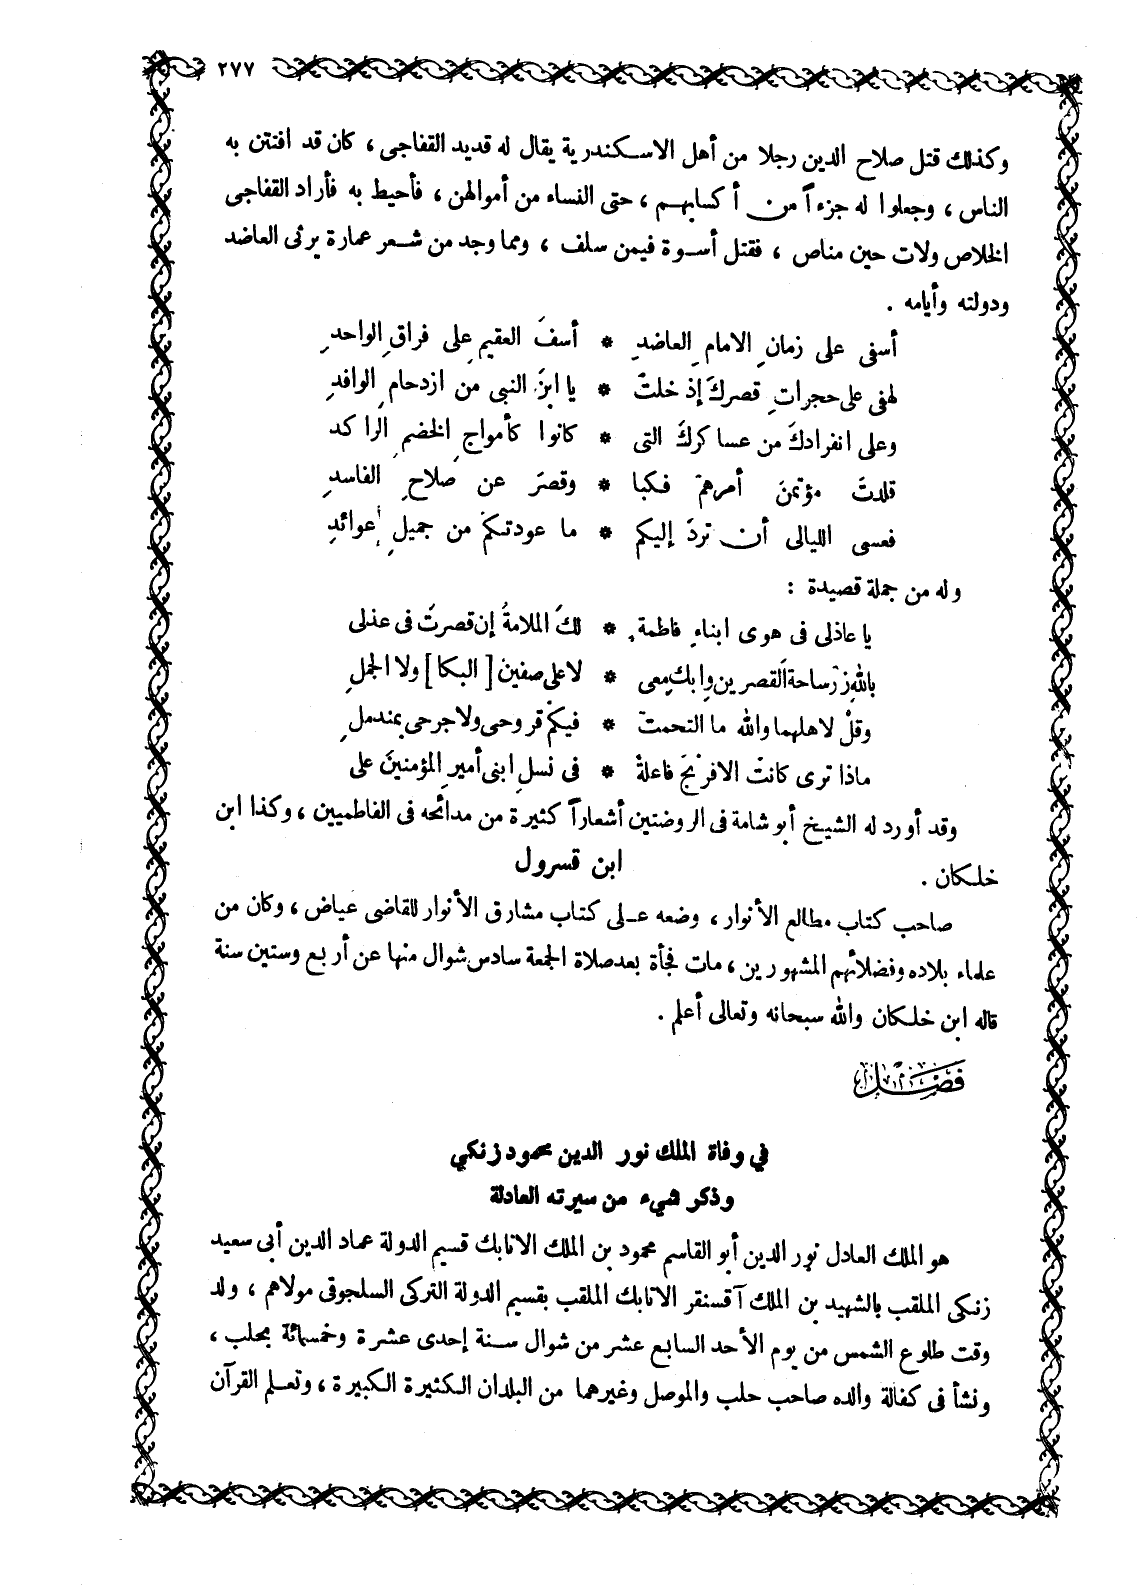 ٢٧٧
وكذلك قتل صلاح الدين رجلا من أهل الاسكندرية يقال له قديد القفاجى ، كان قد افتتن به
الناس ، وجعلوا له جزءاً من أكسابهم ، حتى النساء من أموالهن ، فأحيط به فأراد القفاجى
الخلاص ولات حين مناص ، فقتل أسوة فيمن سلف ، ومما وجد من شعر عمارة يرثى العاضد
ودولته وأيامه .
أسفى على زمانِ الامامِ العاضدِ * أسفَ العقيمِ على فراقِ الواحدِ
لهفى على حجراتِ قصركَ إذ خلتْ * يا ابنَ النبى من ازدحامِ الوافدِ
وعلى انفرادكَ من عساكركَ التى * كانوا كأمواجِ الخضمِ الراكد
قلدتَ مؤتمنَ أمرهمْ فكبا * وقصرَ عن صلاحِ الفاسدِ
فعسى الليالى أن تردَ إليكم * ما عودتكمْ من جميلِ عوائدِ
وله من جملة قصيدة :
يا عاذلى فى هوى ابناءِ فاطمةِ * لكَ الملامةُ إن قصرتَ فى عذلى
باللهِ زرْ ساحةَ القصرينِ وابكِ معى * لا على صفينَ [ البكا ] ولا الجملِ
وقلْ لاهلهما والله ما التحمتْ * فيكمْ قروحى ولا جرحى بمندملِ
ماذا ترى كانتْ الافرنجَ فاعلةً * فى نسلِ ابنى أميرِ المؤمنينَ على
وقد أورد له الشيخ أبو شامة فى الروضتين أشعاراً كثيرة من مدائحه فى الفاطميين ، وكذا ابن
خلكان .
ابن قسرول
صاحب كتاب مطالع الأنوار ، وضعه على كتاب مشارق الأنوار للقاضى عياض ، وكان من
علماء بلاده وفضلائهم المشهورين ، مات فجأة بعد صلاة الجمعة سادس شوال منها عن أربع وستين سنة
قاله ابن خلكان والله سبحانه وتعالى أعلم .
فَصْل
في وفاة الملك نور الدين محمود زنكي
وذكر شيء من سيرته العادلة
هو الملك العادل نور الدين أبو القاسم محمود بن الملك الاتابك قسيم الدولة عماد الدين أبى سعيد
زنكى الملقب بالشهيد بن الملك آقسنقر الاتابك الملقب بقسيم الدولة التركى السلجوقى مولاهم ، ولد
وقت طلوع الشمس من يوم الأحد السابع عشر من شوال سنة إحدى عشرة وخمسمائة بحلب ،
ونشأ فى كفالة والده صاحب حلب والموصل وغيرهما من البلدان الكثيرة الكبيرة ، وتعلم القرآن